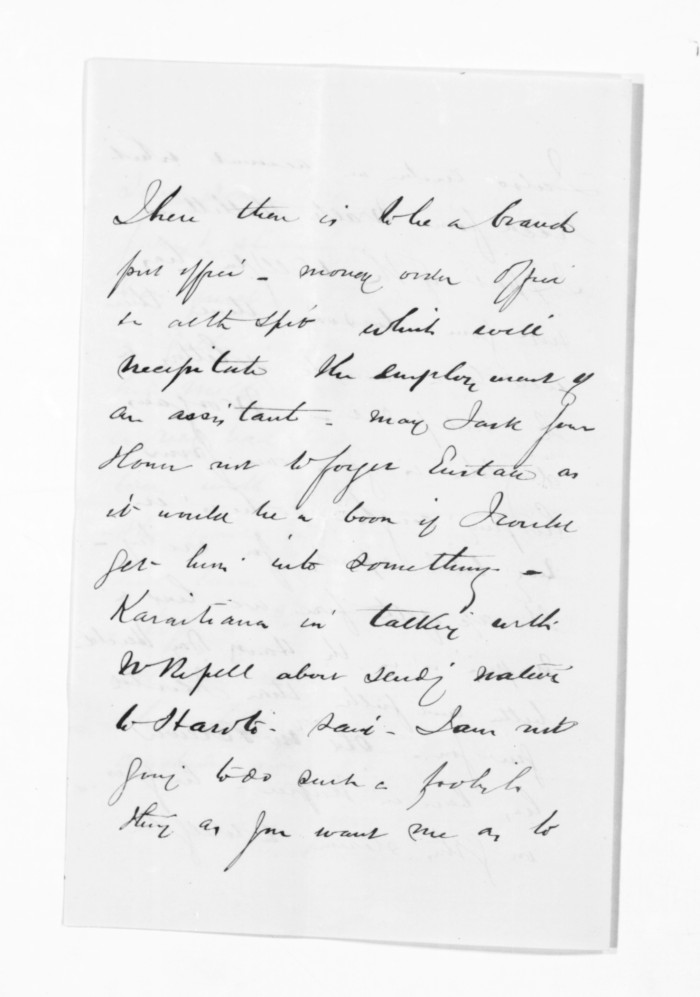 There then is to be a branch
post office - money order office
in all the Spit which will
necessitate the employment of
an assistant - may I ask your
Honor not to forget Eustace as
it would be a boon if I could
get him into something -
Karaitiana in talking with
about sending natives
to - said - I am not
going to do such a foolish
thing as you want me as to